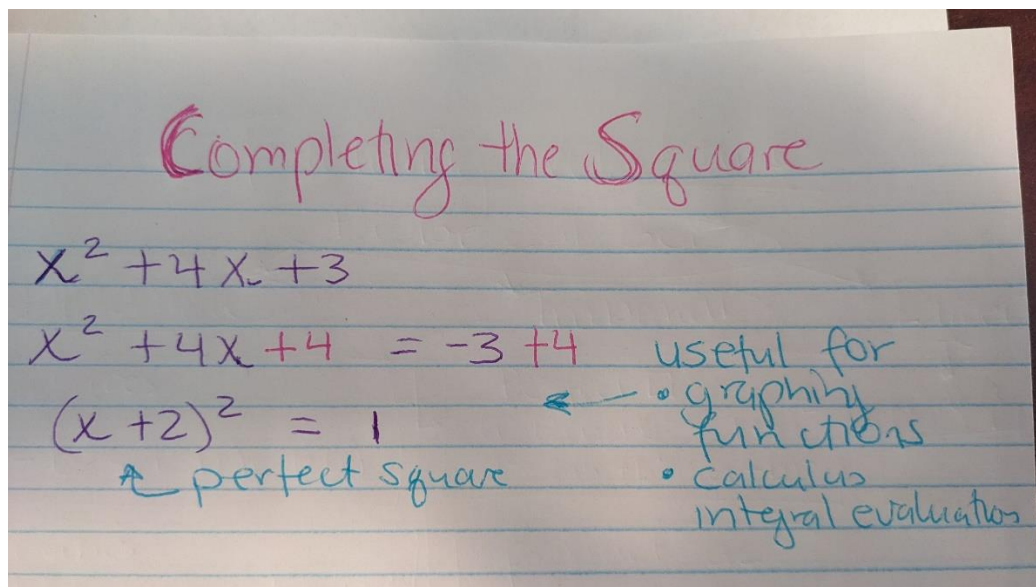 Completing the Square
x² + 4x + 3
x² + 4x + 4 = -3 + 4
(x + 2)² = 1
↑ perfect square
useful for
← • graphing
functions
• calculus
integral evaluation